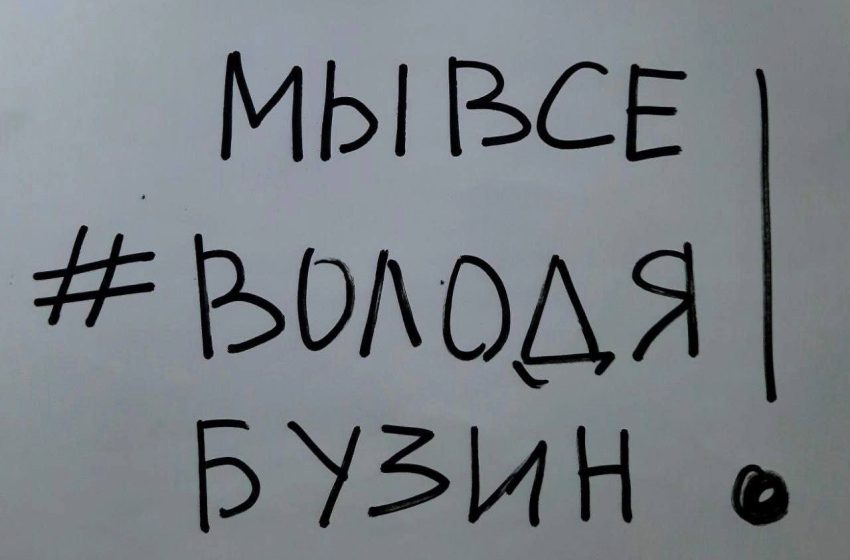 МЫ ВСЕ
#ВОЛОДЯ
БУЗИН!